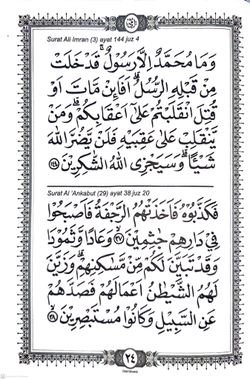 Surat Ali Imran (3) ayat 144 juz 4
وَمَا مُحَمَّدٌ اِلَّا رَسُوْلٌ ۚ قَدْ خَلَتْ
مِنْ قَبْلِهِ الرُّسُلُ ۗ اَفَاۡىِٕنْ مَّاتَ اَوْ
قُتِلَ انْقَلَبْتُمْ عَلٰٓى اَعْقَابِكُمْ ۗ وَمَنْ
يَّنْقَلِبْ عَلٰى عَقِبَيْهِ فَلَنْ يَّضُرَّ اللّٰهَ
شَيْـًٔا ۗ وَسَيَجْزِى اللّٰهُ الشّٰكِرِيْنَ
Surat Al 'Ankabut (29) ayat 38 juz 20
فَكَذَّبُوْهُ فَاَخَذَتْهُمُ الرَّجْفَةُ فَاَصْبَحُوْا
فِيْ دَارِهِمْ جٰثِمِيْنَ ٣٧ وَعَادًا وَّثَمُوْدَا۟
وَقَدْ تَّبَيَّنَ لَكُمْ مِّنْ مَّسٰكِنِهِمْ ۗ وَزَيَّنَ
لَهُمُ الشَّيْطٰنُ اَعْمَالَهُمْ فَصَدَّهُمْ
عَنِ السَّبِيْلِ وَكَانُوْا مُسْتَبْصِرِيْنَ ٣٨
٢٤